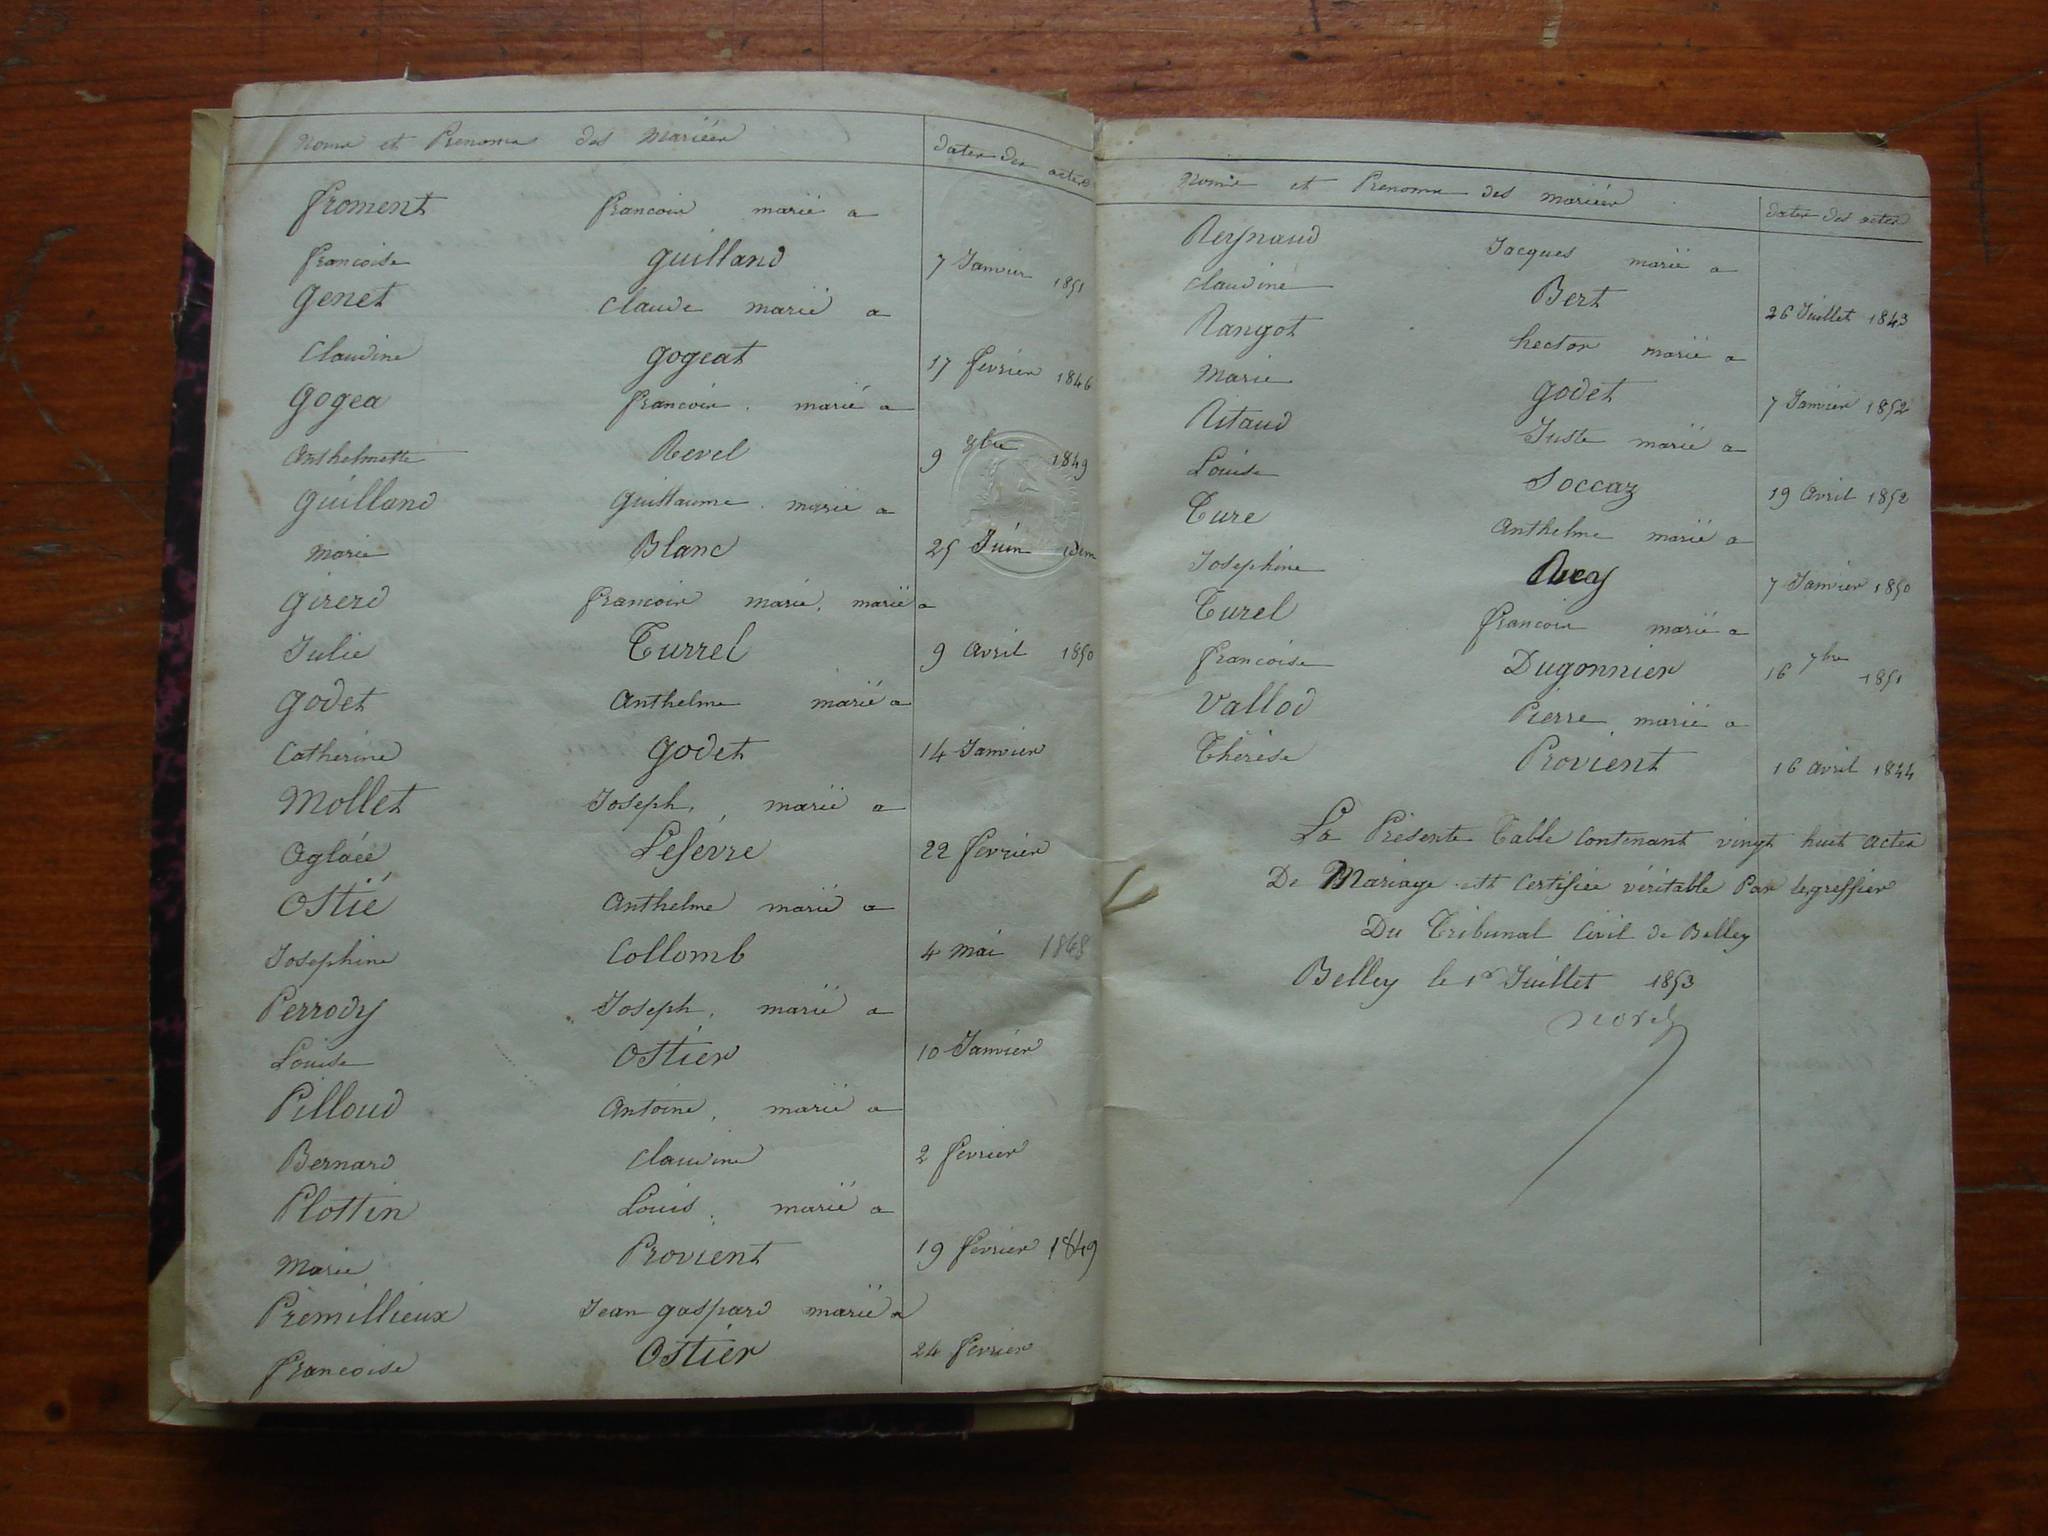 Noms et Prenoms des Mariées dates des actes
froment francois marié a
francoise guilland 7 Janvier 1851
genet Claude marié a
Claudine gogeat 17 fevrier 1846
gogea francois. marié a
Anthelmette Revel 9 8bre 1849
guilland guillaume. marié a
Marie Blanc 25 Juin idem
girerd francois marie, marié a
Julie Turrel 9 avril 1850
godet Anthelme marié a
Catherine godet 14 Janvier
Mollet Joseph, marié a
Aglaée Lefévre 22 fevrier
Ostié Anthelme marié a
Josephine Collomb 4 mai 1848
Perrody Joseph, marié a
Louise Ostier 10 Janvier
Pilloud Antoine, marié a
Bernard Claudine 2 fevrier
Plottin Louis, marié a
Marie Provient 19 fevrier 1849
Premillieux Jean gaspard marié a
francoise Ostier 24 fevrier
Noms et Prenoms des mariées dates des actes
Reynaud Jacques marié a
Claudine Bert 26 Juillet 1843
Rangot hector marié a
Marie godet 7 Janvier 1852
Ritaud Juste marié a
Louise Soccaz 19 avril 1852
Ture Anthelme marié a
Josephine 7 Janvier 1850
Turel francois marié a
francoise Dugonnier 16 7bre 1851
Vallod Pierre marié a
Thérèse Provient 16 avril 1844
La Présente Table Contenant vingt huit actes
De Mariage est Certifiée véritable Par le greffier
Du Tribunal Civil de Belley
Belley le 1er Juillet 1853